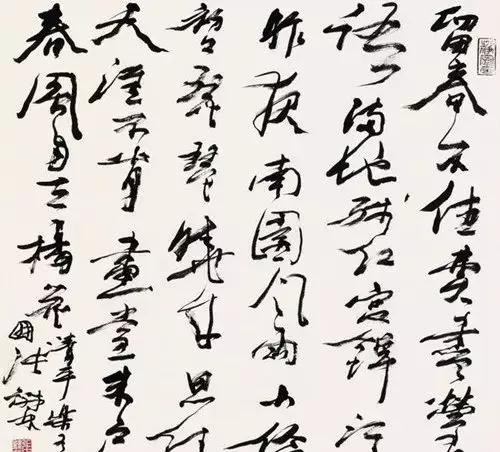 留春不住费尽莺
语满地残红宫锦污
昨夜南园风雨小怜
初上琵琶晓来思绕
天涯不肯画堂朱户
春风自在杨花
清平乐